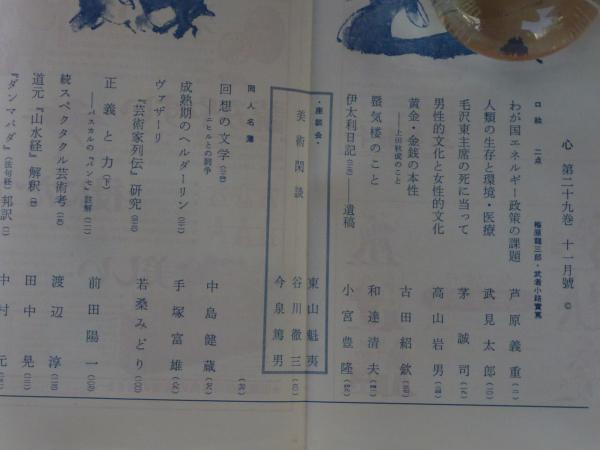 心 第二十九巻 十一月號 ©
口絵 二点 梅原龍三郎・武者小路實篤
わが国エネルギー政策の課題 芦原義重
人類の生存と環境・医療 武見太郎
毛沢東主席の死に当って 茅誠司
男性的文化と女性的文化 高山岩男
黄金・金銭の本性 古田紹欽
――上田秋成のこと
蜃気楼のこと 和達清夫
伊太利日記――遺稿 小宮豊隆
・座談会・
美術閑談
東山魁夷
谷川徹三
今泉篤男
同人名簿
回想の文学 中島健蔵
――ニヒルとの闘争
成熟期のヘルダーリン 手塚富雄
ヴァザーリ
『芸術家列伝』研究 若桑みどり
正義と力(下) 前田陽一
――パスカルの『パンセ』註解
続スペクタクル芸術考 渡辺淳
道元『山水経』解釈 田中晃
『ダンマパダ』(法句経)邦訳 中村元